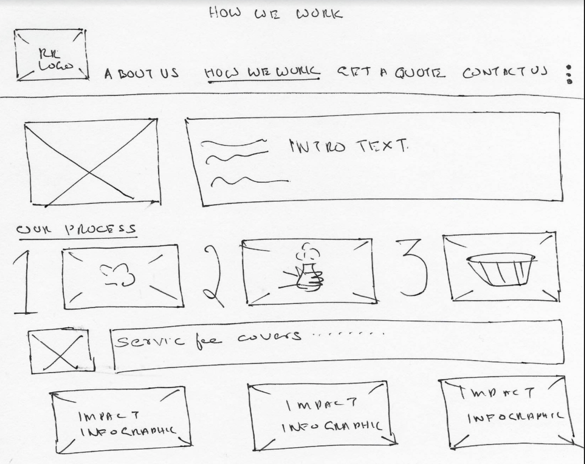 HOW WE WORK
RR
LOGO
ABOUT US HOW WE WORK GET A QUOTE CONTACT US
INTRO TEXT.
OUR PROCESS
1 2 3
Servic fee covers ........
IMPACT
INFOGRAPHIC
IMPACT
INFOGRAPHIC
IMPACT
INFOGRAPHIC